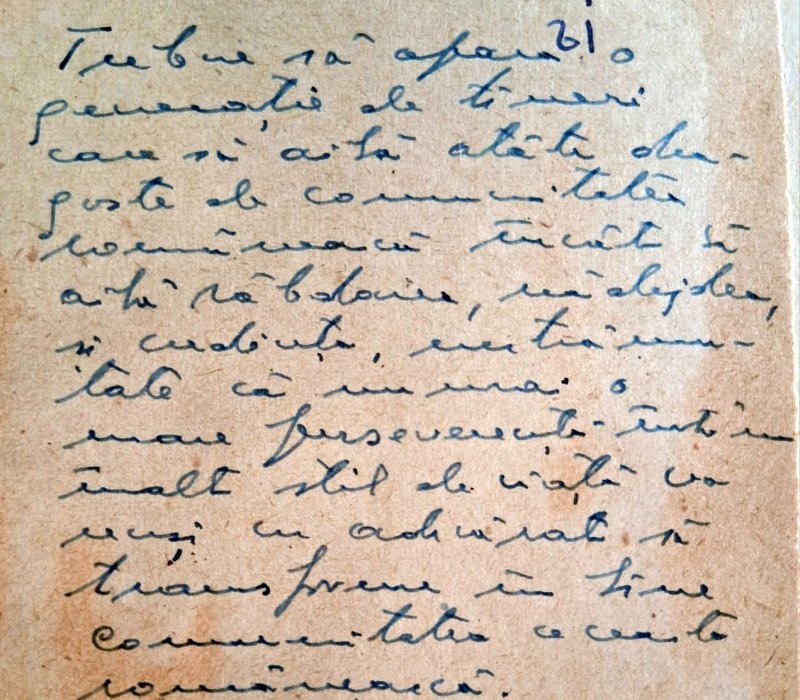 61
Trebue să apară o
generație de tineri
care să aibă atâta dra-
goste de comunitatea
românească încât să
aibă răbdarea, nădejdea,
și credința, nestrămu-
tate că numai o
mare perseverență într'un
înalt stil de viață va
reuși cu adevărat să
transforme în bine
comunitatea aceasta
românească.